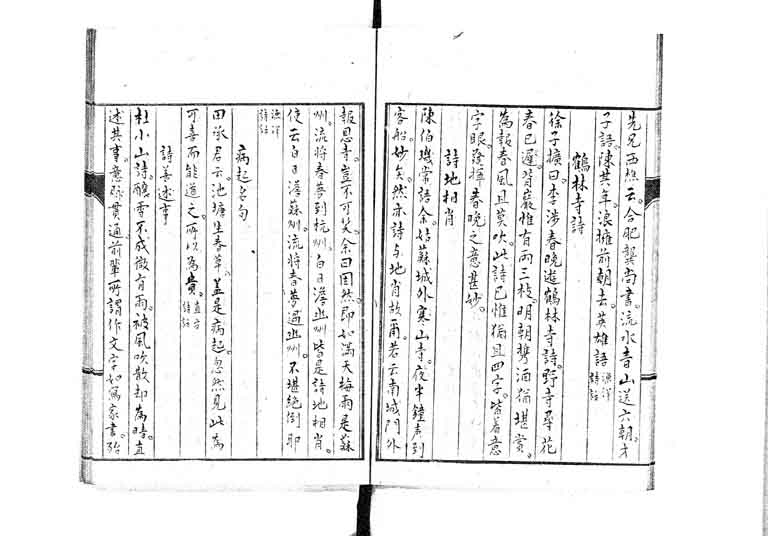 先兄西樵云。合肥龔尚書。流水青山送六朝。才
子語。陳其年浪擁前朝去。英雄語 漁洋詩話
鶴林寺詩
徐子擴曰。李涉春晚遊鶴林寺詩。野寺尋花
春已遲。背巖惟有兩三枝。明朝攜酒猶堪賞。
為報春風且莫吹。此詩已惟猶且四字。皆著意
字眼。發揮春晚之意甚妙。
詩地相肖
陳伯璣常語余。姑蘇城外寒山寺。夜半鐘聲到
客船。妙矣。然亦詩與地肖故爾。若云南城門外
報恩寺。豈不可笑。余曰固然。即如滿天梅雨是蘇
州。流將春夢到杭州。白日澹幽州。皆是詩地相肖。
使云白日澹蘇州。流將春夢過幽州。不堪絕倒耶
漁洋詩話
病起名句
田承君云。池塘生春草。蓋是病起。忽然見此為
可喜而能道之。所以為貴。直方詩話
詩善述事
杜小山詩。釀雪不成微有雨。被風吹散却為晴。直
述其事。意脉貫通。前輩所謂作文字如寫家書。殆